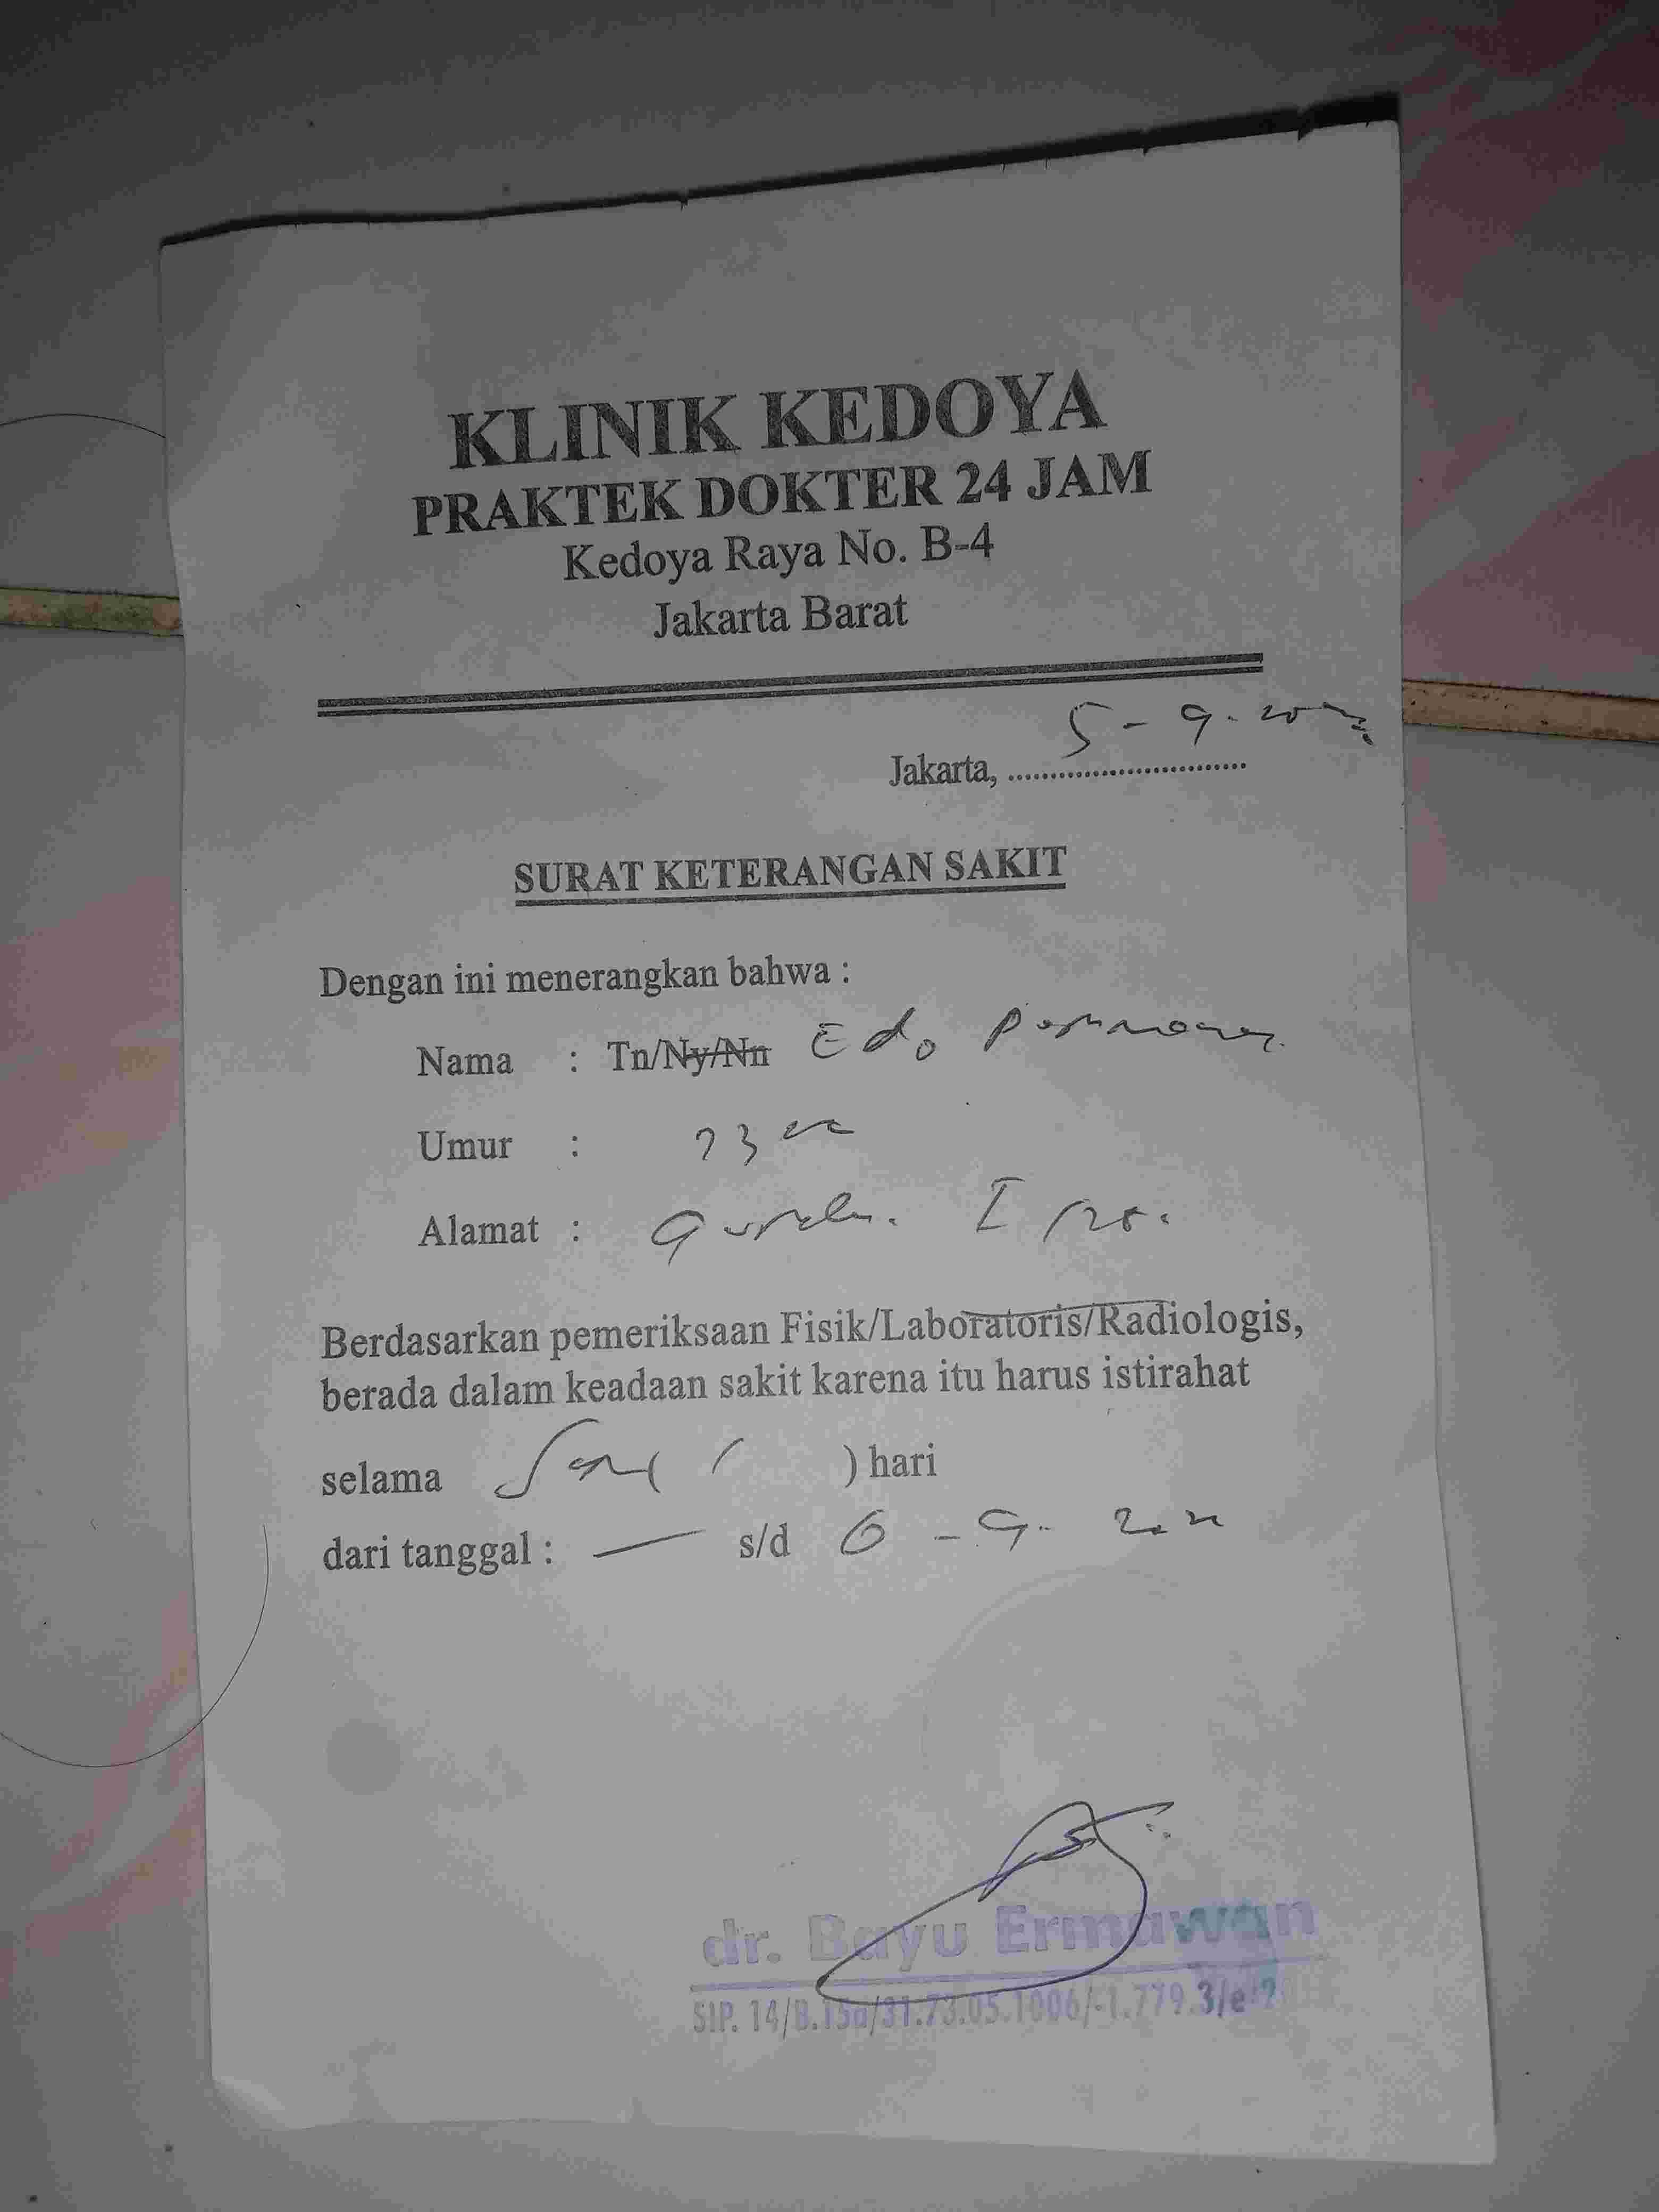 KLINIK KEDOYA
PRAKTEK DOKTER 24 JAM
Kedoya Raya No. B-4
Jakarta Barat
Jakarta, 5 - 9 -
SURAT KETERANGAN SAKIT
Dengan ini menerangkan bahwa :
Nama : Tn/Ny/Nn Edo
Umur : 23
Alamat :
Berdasarkan pemeriksaan Fisik/Laboratoris/Radiologis,
berada dalam keadaan sakit karena itu harus istirahat
selama ( ) hari
dari tanggal : — s/d 6 - 9 -
dr. Bayu Ermawan
SIP. 14/B.15a/31.73.05.1006/-1.779.3/e